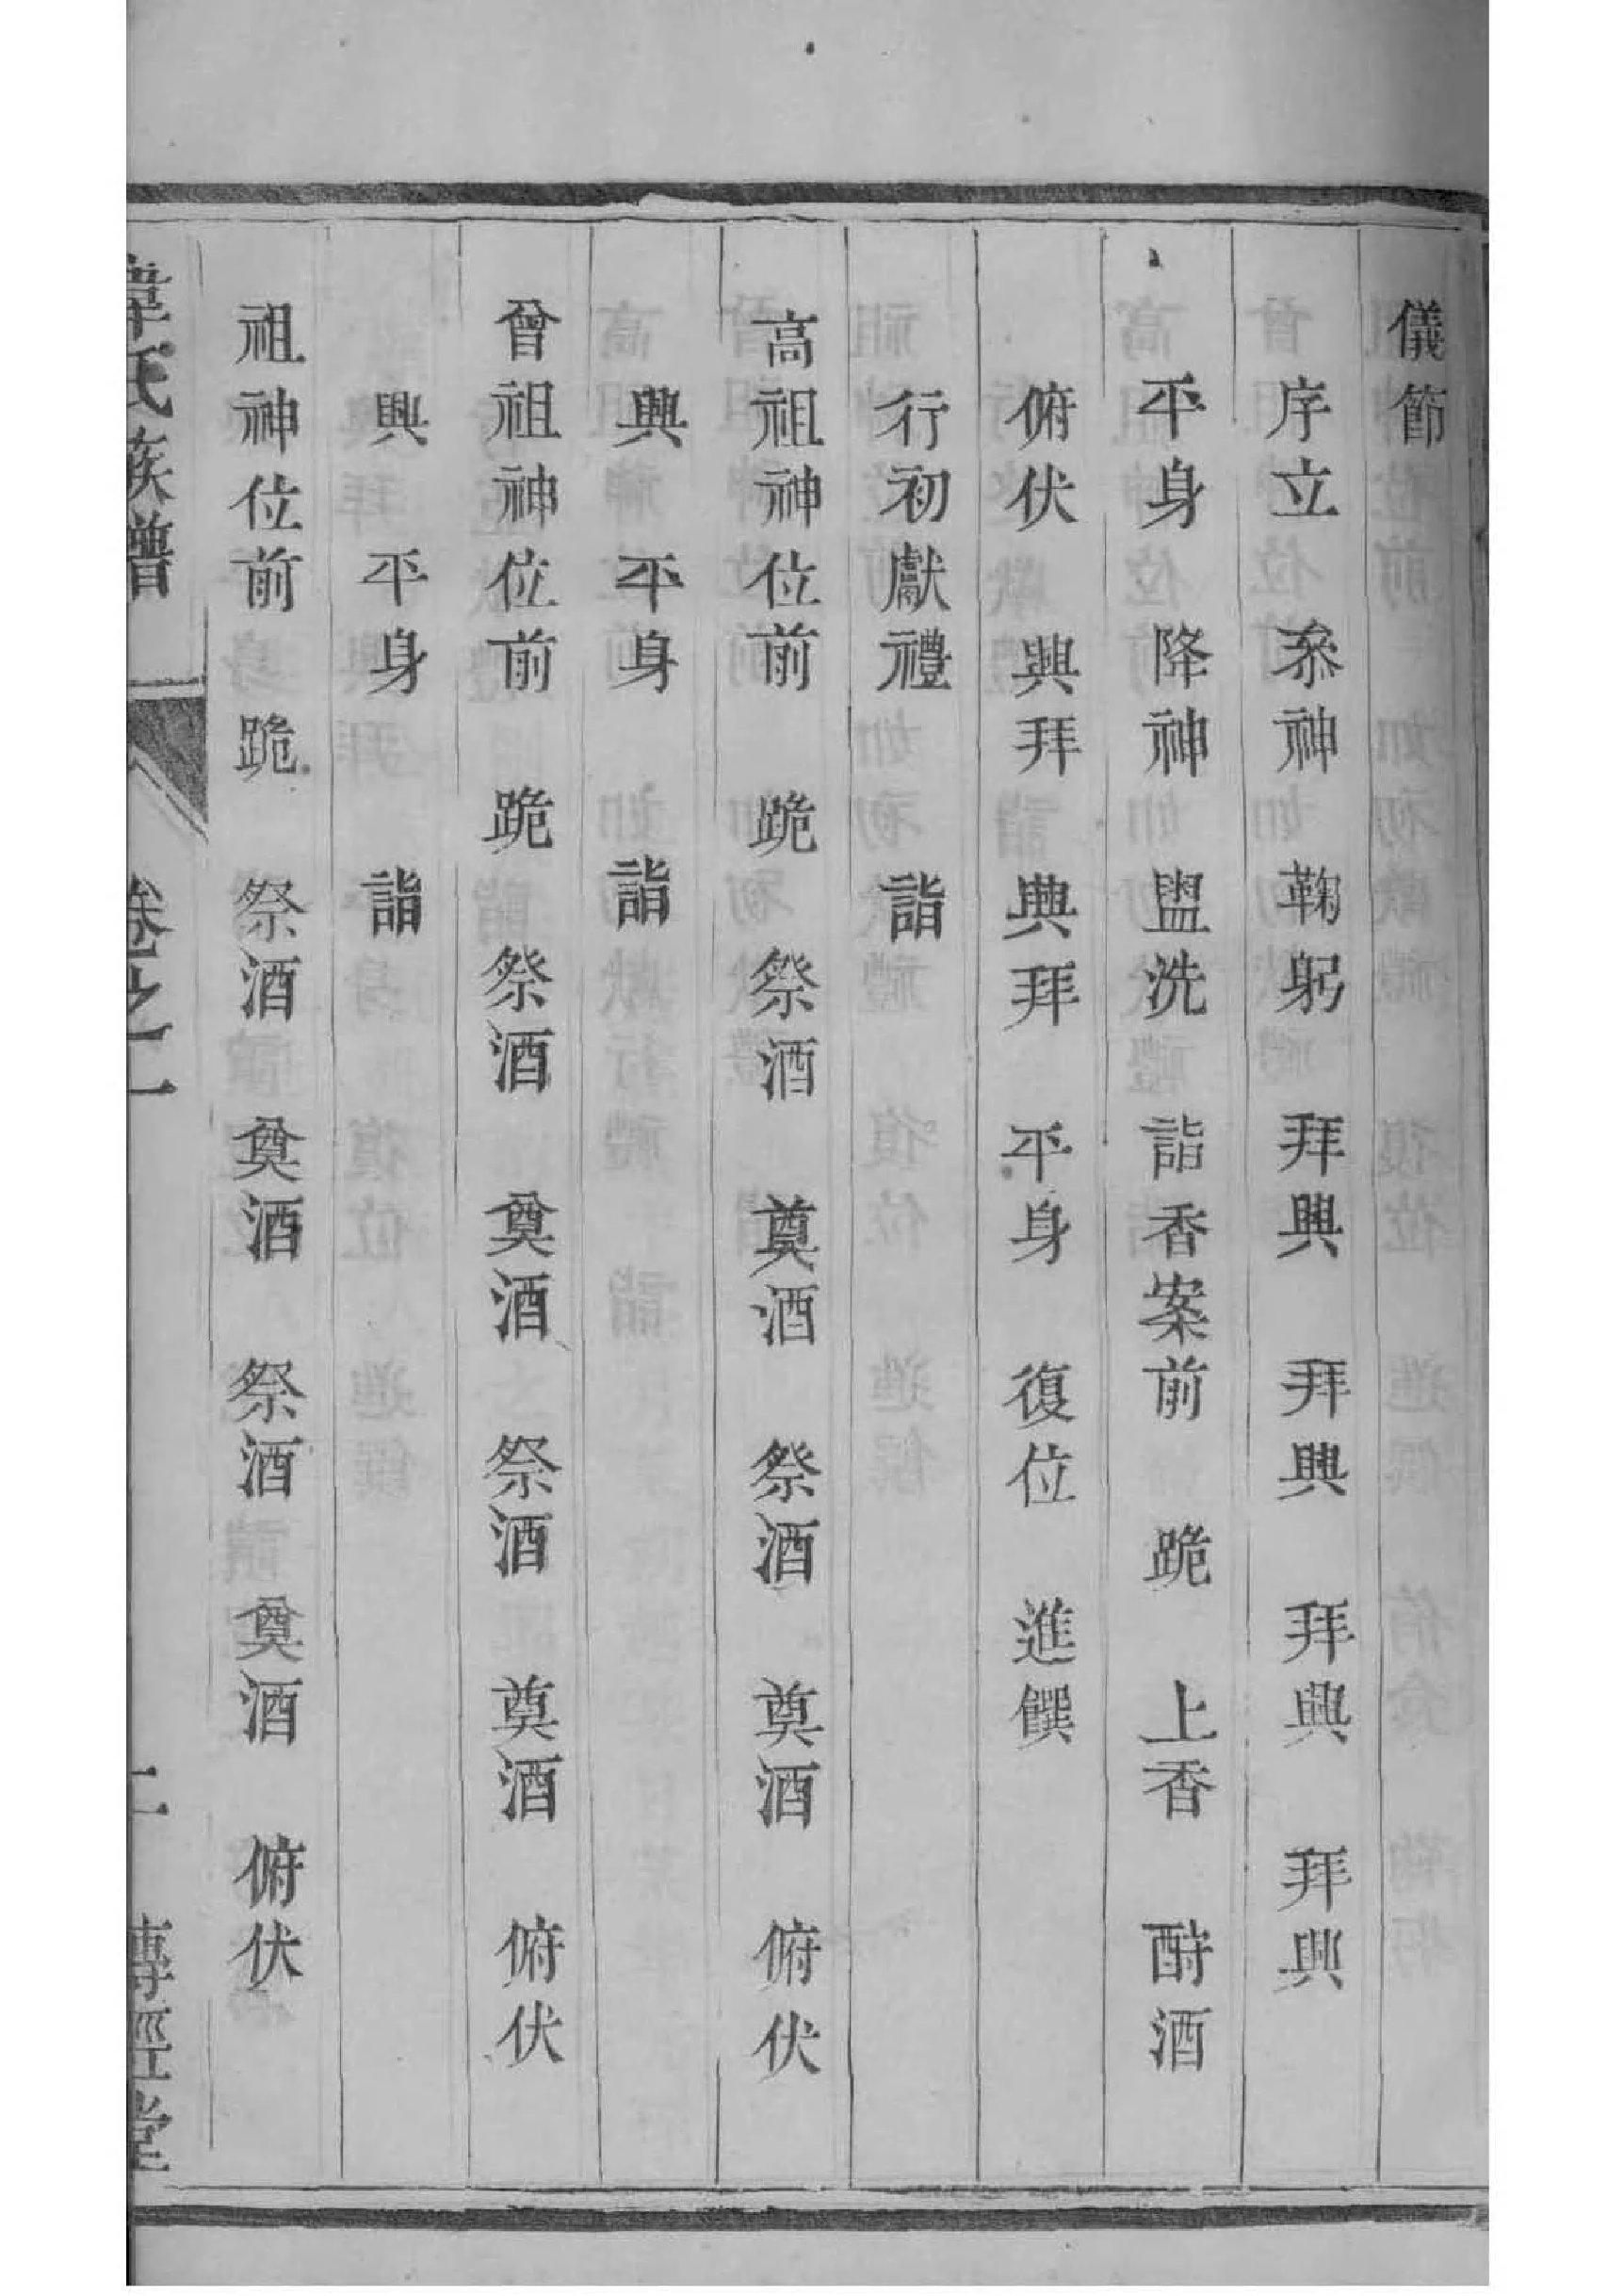 儀節
序立　叅神　鞠躬　拜興　拜興　拜興　拜興
平身　降神　盥洗　詣香案前　跪　上香　酹酒
俯伏　興拜　興拜　平身　復位　進饌
行初獻禮　詣
高祖神位前　跪　祭酒　奠酒　祭酒　奠酒　俯伏
興　平身　詣
曾祖神位前　跪　祭酒　奠酒　祭酒　奠酒　俯伏
興　平身　詣
祖神位前　跪　祭酒　奠酒　祭酒　奠酒　俯伏
韋氏族譜　卷之一　　傳經堂